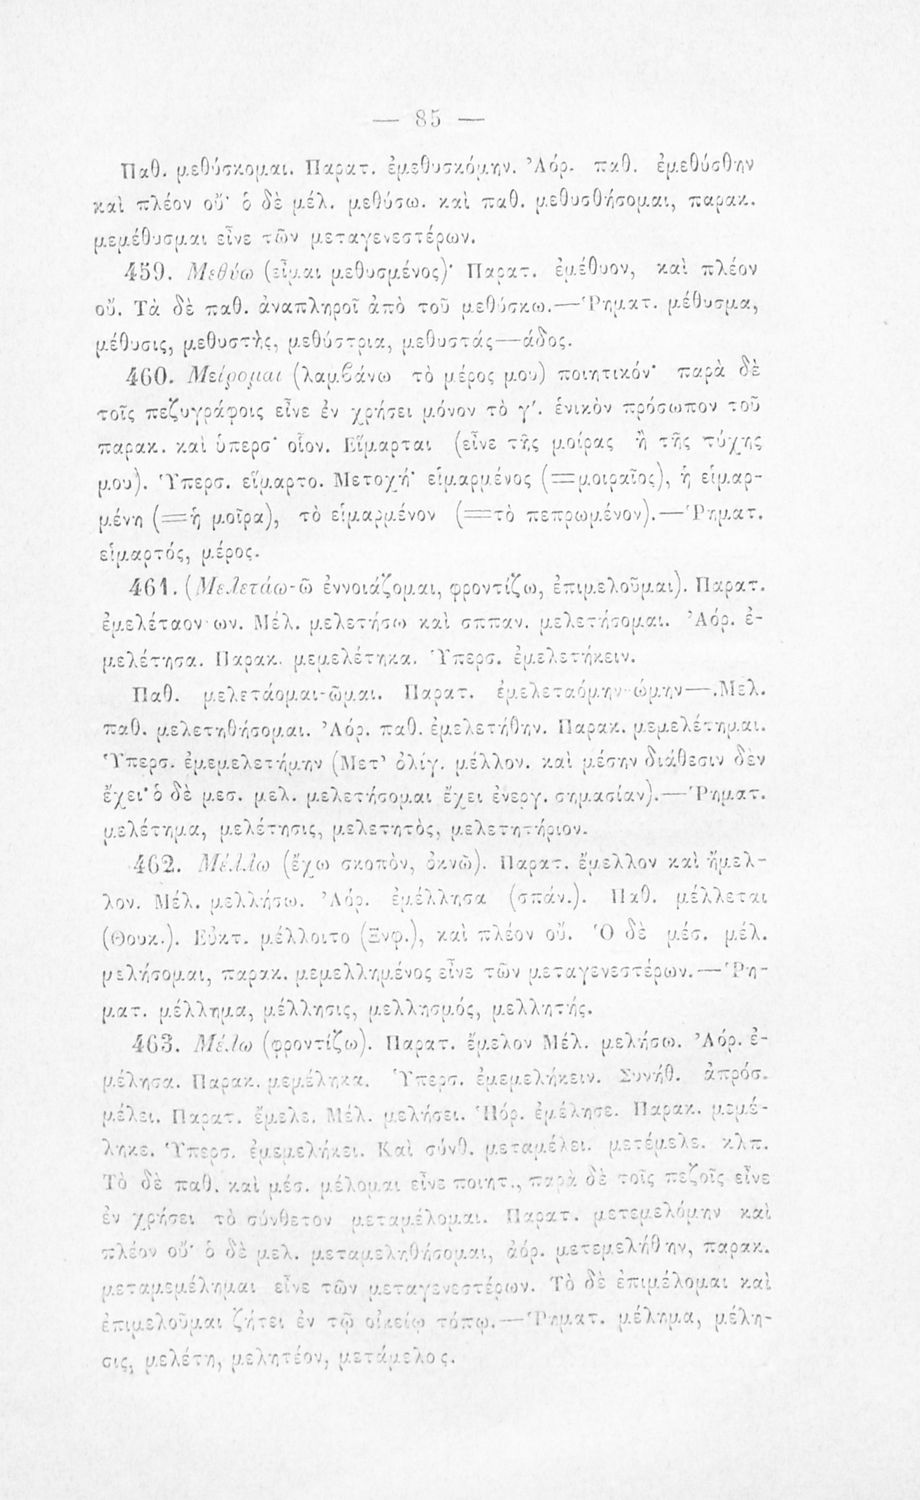 — 85 —
Παθ. μεθύσκομαι. Παρατ. ἐμεθυσκόμην. Ἀόρ. παθ. ἐμεθύσθην
καὶ πλέον οὔ· ὁ δὲ μέλ. μεθύσω. καὶ παθ. μεθυσθήσομαι, παρακ.
μεμέθυσμαι εἶνε τῶν μεταγενεστέρων.
459. Μεθύω (εἶμαι μεθυσμένος)· Παρατ. ἐμέθυον, καὶ πλέον
οὔ. Τὰ δὲ παθ. ἀναπληροῖ ἀπὸ τοῦ μεθύσκω.—Ῥηματ. μέθυσμα,
μέθυσις, μεθυστὴς, μεθύστρια, μεθυστάς—άδος.
460. Μείρομαι (λαμβάνω τὸ μέρος μου) ποιητικόν· παρὰ δὲ
τοῖς πεζογράφοις εἶνε ἐν χρήσει μόνον τὸ γ΄. ἑνικὸν πρόσωπον τοῦ
παρακ. καὶ ὑπερσ· οἷον. Εἵμαρται (εἶνε τῆς μοίρας ἢ τῆς τύχης
μου). Ὑπερσ. εἵμαρτο. Μετοχή· εἱμαρμένος (=μοιραῖος), ἡ εἱμαρ-
μένη (=ἡ μοῖρα), τὸ εἱμαρμένον (=τὸ πεπρωμένον).—Ῥηματ.
εἱμαρτός, μέρος.
461. (Μελετάω-ῶ ἐννοιάζομαι, φροντίζω, ἐπιμελοῦμαι). Παρατ.
ἐμελέταον-ων. Μέλ. μελετήσω καὶ σππαν. μελετήσομαι. Ἀόρ. ἐ-
μελέτησα. Παρακ. μεμελέτηκα. Ὑπερσ. ἐμελετήκειν.
Παθ. μελετάομαι-ῶμαι. Παρατ. ἐμελεταόμην-ώμην—.Μελ.
παθ. μελετηθήσομαι. Ἀόρ. παθ. ἐμελετήθην. Παρακ. μεμελέτημαι.
Ὑπερσ. ἐμεμελετήμην (Μετ' ὀλίγ. μέλλον. καὶ μέσην διάθεσιν δὲν
ἔχει· ὁ δὲ μεσ. μελ. μελετήσομαι ἔχει ἐνεργ. σημασίαν).—Ῥηματ.
μελέτημα, μελέτησις, μελετητὸς, μελετητήριον.
462. Μέλλω (ἔχω σκοπὸν, ὀκνῶ). Παρατ. ἔμελλον καὶ ἤμελ-
λον. Μέλ. μελλήσω. Ἀόρ. ἐμέλλησα (σπάν.). Παθ. μέλλεται
(Θουκ.). Εὐκτ. μέλλοιτο (Ξνφ.), καὶ πλέον οὔ. Ὁ δὲ μέσ. μέλ.
μελήσομαι, παρακ. μεμελλημένος εἶνε τῶν μεταγενεστέρων.—Ῥη-
ματ. μέλλημα, μέλλησις, μελλησμός, μελλητής.
463. Μέλω (φροντίζω). Παρατ. ἔμελον Μέλ. μελήσω. Ἀόρ. ἐ-
μέλησα. Παρακ. μεμέληκα. Ὑπερσ. ἐμεμελήκειν. Συνήθ. ἀπρόσ.
μέλει. Παρατ. ἔμελε. Μέλ. μελήσει. Ἀόρ. ἐμέλησε. Παρακ. μεμέ-
ληκε. Ὑπερσ. ἐμεμελήκει. Καὶ σύνθ. μεταμέλει. μετέμελε. κλπ.
Τὸ δὲ παθ. καὶ μέσ. μέλομαι εἶνε ποιητ., παρὰ δὲ τοῖς πεζοῖς εἶνε
ἐν χρήσει τὸ σύνθετον μεταμέλομαι. Παρατ. μετεμελόμην καὶ
πλέον οὔ· ὁ δὲ μελ. μεταμεληθήσομαι, ἀόρ. μετεμελήθην, παρακ.
μεταμεμέλημαι εἶνε τῶν μεταγενεστέρων. Τὸ δὲ ἐπιμέλομαι καὶ
ἐπιμελοῦμαι ζήτει ἐν τῷ οἰκείῳ τόπῳ.—Ῥηματ. μέλημα, μέλη-
σις, μελέτη, μελητέον, μετάμελος.